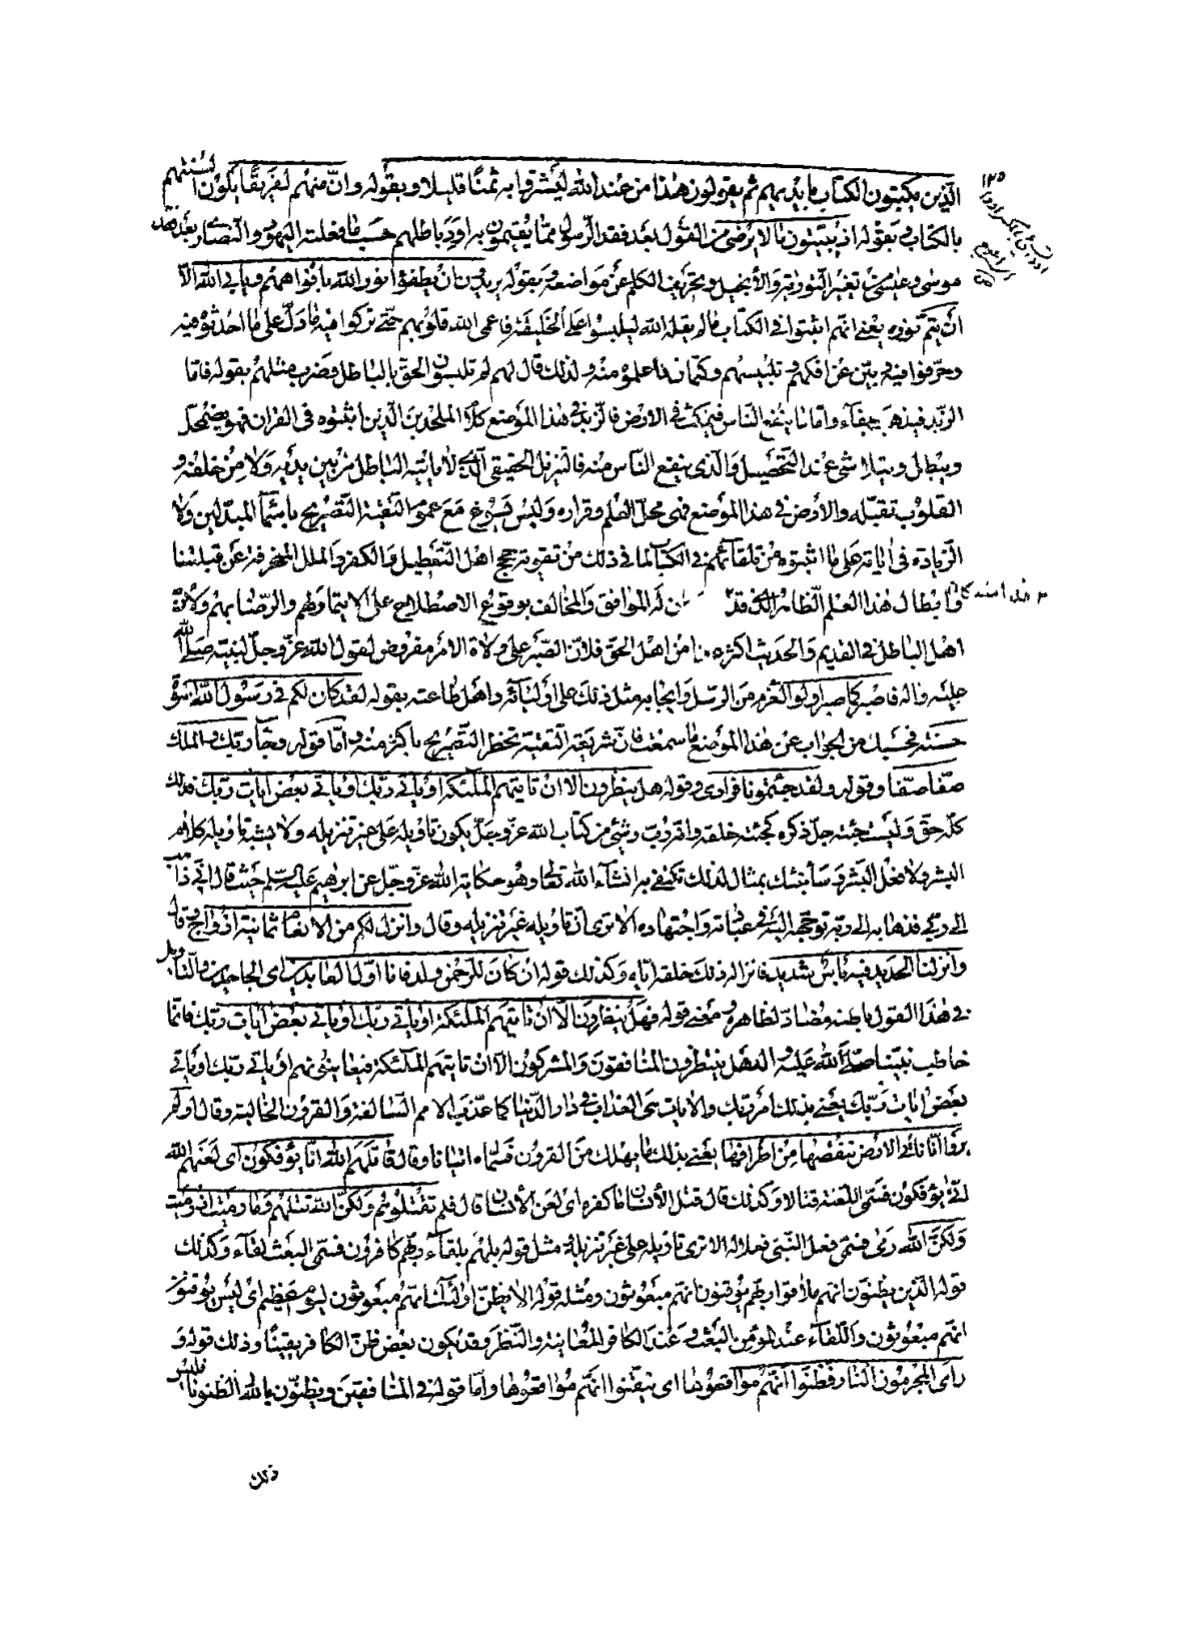 الذين يكتبون الكتاب بايديهم ثم يقولون هذا من عند الله ليشتروا به ثمنا قليلا وبقوله وان منهم لفريقا يلون السنتهم
بالكتاب وبقوله اذ يبيتون ما لا يرضى من القول بعد فقد الرسول مما يقيمون به اود باطلهم حسب ما فعلته اليهود والنصارى بعد فقد
موسى وعيسى من تغيير التورية والانجيل وتحريف الكلم عن مواضعه وبقوله يريدون ان يطفؤا نور الله بافواههم ويابى الله الا
ان يتم نوره يعنى انهم اثبتوا فى الكتاب ما لم يقله الله ليلبسوا على الخليقة فاعمى الله قلوبهم حتى تركوا فيه ما دل على ما احدثوه فيه
وحرفوا فيه وبين عن افكهم وتلبيسهم وكتمان ما علموه منه ولذلك قال لهم لم تلبسون الحق بالباطل وضرب مثلهم بقوله فاما
الزبد فيذهب جفاء واما ما ينفع الناس فيمكث فى الارض فالزبد فى هذا الموضع كلام الملحدين الذين اثبتوه فى القران فهو يضمحل
ويبطل ويتلاشى عند التحصيل والذى ينفع الناس منه فالتنزيل الحقيقى الذى لا ياتيه الباطل من بين يديه ولا من خلفه و
القلوب تقبله والارض فى هذا الموضع فهى محل العلم وقراره وليس يسوغ مع عموم التقية التصريح باسماء المبدلين ولا
الزيادة فى اياته على ما اثبتوه من تلقائهم فى الكتاب لما فى ذلك من تقوية حجج اهل التعطيل والكفر والملل المنحرفة عن قبلتنا
وابطال هذا العلم الظاهر الذى قد ن له الموافق والمخالف بوقوع الاصطلاح على الايتمار لهم والرضا بهم ولان
اهل الباطل فى القديم والحديث اكثر من اهل الحق فلان الصبر على ولاة الامر مفروض لقول الله عز وجل لنبيه صلى الله
عليه واله فاصبر كما صبر اولو العزم من الرسل وايجابه مثل ذلك على اوليائه واهل طاعته بقوله لقد كان لكم فى رسول الله اسوة
حسنة فحسبك من الجواب عن هذا الموضع ما سمعت فان شريعة التقية تحظر التصريح باكثر منه واما قوله وجاء ربك والملك
صفا صفا وقوله ولقد جئتمونا فرادى وقوله هل ينظرون الا ان تاتيهم الملئكة او ياتى ربك او ياتى بعض ايات ربك فذلك
كله حق وليست جيئته جل ذكره كجيئة خلقه ورب شئ من كتاب الله عز وجل يكون تاويله على غير تنزيله ولا يشبه تاويله كلام
البشر ولا فعل البشر وسانبئك بمثال لذلك تكتفى به انشاء الله تعالى وهو حكاية الله عز وجل عن ابرهيم عليه السلم حيث قال انى ذاهب
الى ربى فذهابه الى ربه توجهه اليه فى عبادته واجتهاده الا ترى ان تاويله غير تنزيله وقال وانزل لكم من الانعام ثمانية ازواج وقال
وانزلنا الحديد فيه باس شديد فانزاله ذلك خلقه اياه وكذلك قوله ان كان للرحمن ولد فانا اول العابدين اى الجاحدين والتاويل
فى هذا القول باطنه مضاد لظاهره ومعنى قوله فهل ينظرون الا ان تاتيهم الملئكة او ياتى ربك او ياتى بعض ايات ربك فانما
خاطب نبينا صلى الله عليه واله هل ينتظرون المنافقون والمشركون الا ان تاتيهم الملئكة فيعاينونهم او ياتى ربك او ياتى
بعض ايات ربك يعنى بذلك امر ربك والايات هى العذاب فى دار الدنيا كما عذب الامم السالفة والقرون الخالية وقال اولم
يروا انا ناتى الارض ننقصها من اطرافها يعنى بذلك ما يهلك من القرون فسماه اتيانا وقال قاتلهم الله انى يؤفكون اى لعنهم الله
انى يؤفكون فسمى اللعنة قتالا وكذلك قال قتل الانسان ما اكفره اى لعن الانسان وقال فلم تقتلوهم ولكن الله قتلهم وما رميت اذ رميت
ولكن الله رمى فسمى فعل النبى فعلا له الا ترى تاويله على غير تنزيله ومثل قوله بل هم بلقاء ربهم كافرون فسمى البعث لقاء وكذلك
قوله الذين يظنون انهم ملاقوا ربهم يوقنون انهم مبعوثون ومثله قوله الا يظن اولئك انهم مبعوثون ليوم عظيم اى ليس يوقنون
انهم مبعوثون واللقاء عند المؤمن البعث وعند الكافر المعاينة والنظر وقد يكون بعض ظن الكافر يقينا وذلك قوله و
راى المجرمون النار فظنوا انهم مواقعوها اى تيقنوا انهم مواقعوها واما قوله فى المنافقين ويظنون بالله الظنونا فليس
ذلك
١٢٥